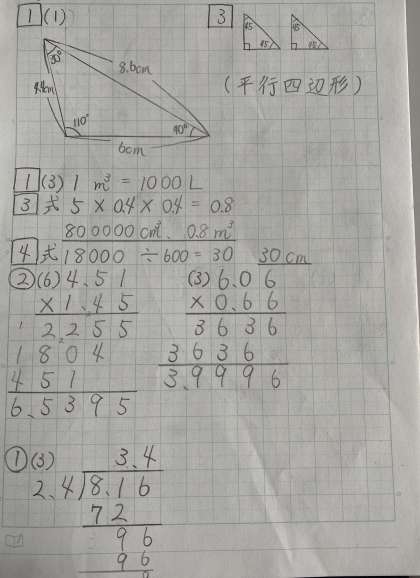 1 (1)
30°
8.6cm
4.4cm
110°
40°
6cm
3
45 45 45 45
(平行四辺形)
1 (3) 1 m³ = 1000 L
3 式 5 × 0.4 × 0.4 = 0.8
800000 cm³、0.8 m³
4 式 18000 ÷ 600 = 30 30 cm
② (6) 4.51
× 1.45
2255
1804
451
6.5395
(3) 6.06
× 0.66
3636
3636
3.9996
① (3) 3.4
2.4)8.16
72
96
96
0